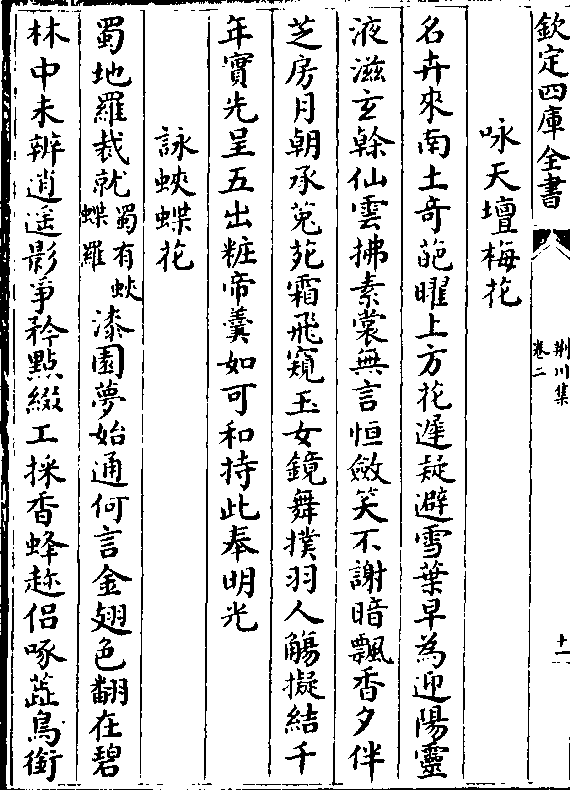 欽定四庫全書
荆川集
卷二
十一
咏天壇梅花
名卉來南土奇葩曜上方花遲疑避雪葉早為迎陽靈
液滋玄榦仙雲拂素裳無言恒斂笑不謝暗飄香夕伴
芝房月朝承兎苑霜飛窺玉女鏡舞撲羽人觴擬結千
年實先呈五出粧帝羮如可和持此奉明光
詠蛺蝶花
蜀地羅裁就蜀有蛺蝶羅漆園夢始通何言金翅色翻在碧
林中未辨逍遥影爭矜㸃綴工採香蜂趂侣啄蘂鳥銜